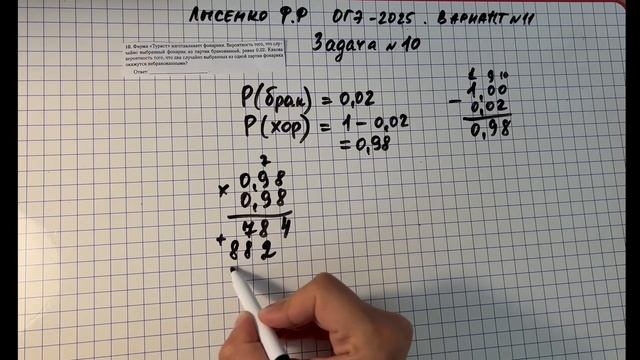 ЛЫСЕНКО Ф.Р ОГЭ-2025. ВАРИАНТ №11
Задача №10
10. Фирма «Турист» изготавливает фонарики. Вероятность того, что слу-
чайно выбранный фонарик из партии бракованный, равна 0,02. Какова
вероятность того, что два случайно выбранных из одной партии фонарика
окажутся небракованными?
Ответ:
P(брак) = 0,02
P(хор) = 1-0,02
= 0,98
1 9 10
1,00
- 0,02
0,98
7
0,98
x 0,98
784
+ 882